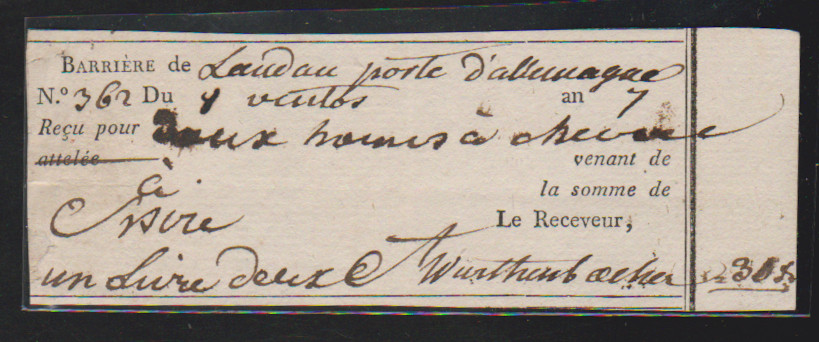 BARRIÈRE de Landau porte d'allemagne
N.º 362 Du ventos an 7
Reçu pour deux homes à cheval
attelée venant de
à la somme de
Le Receveur,
un Livre deux Wurthenbaecher